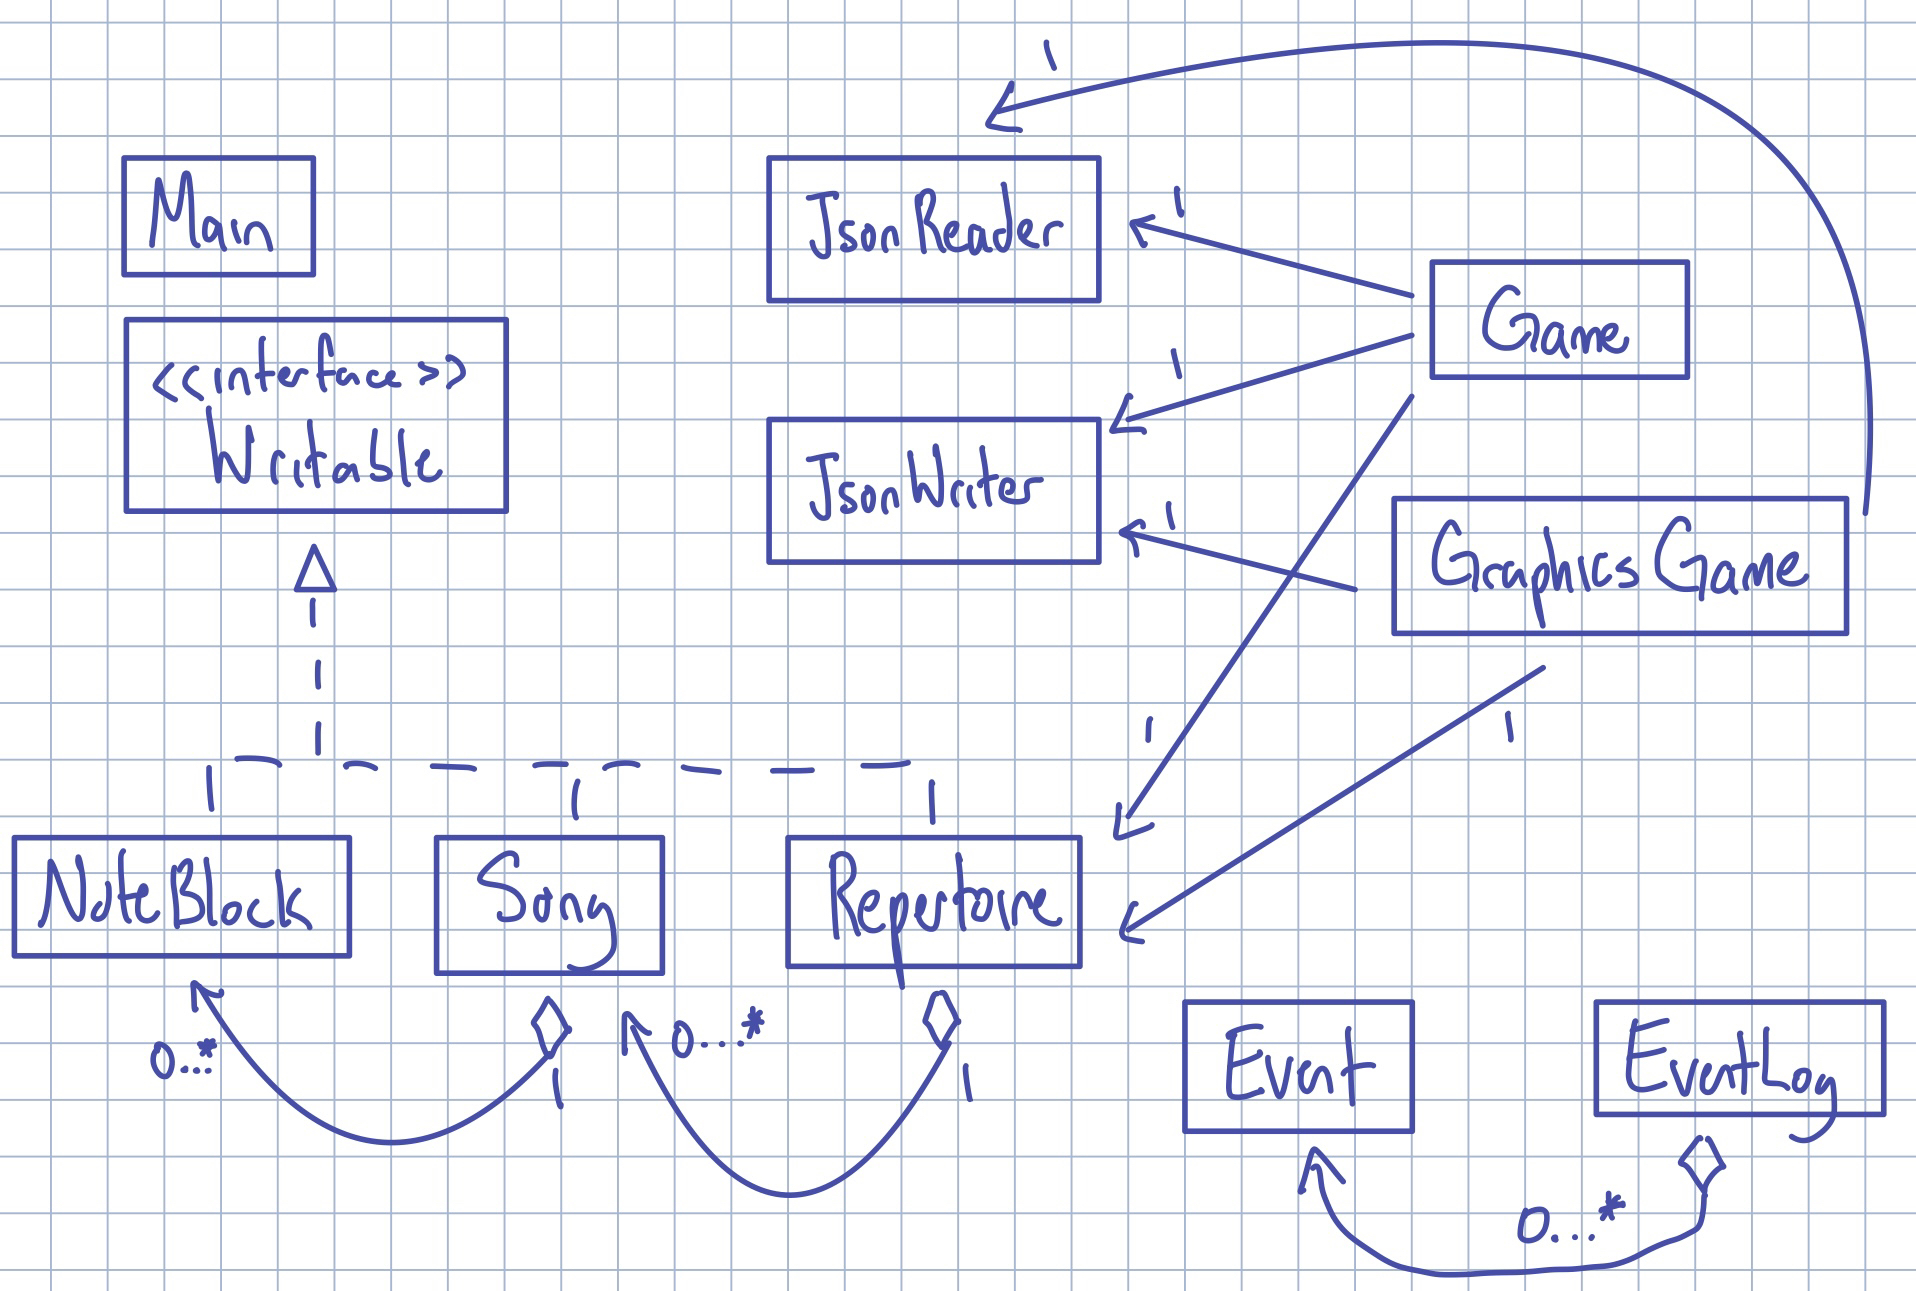 1
Main
JsonReader
1
Game
<<interface>>
Writable
1
JsonWriter
1
Graphics Game
1
1
NoteBlock
Song
Repertoire
0...*
1
0....*
1
Event
EventLog
0....*